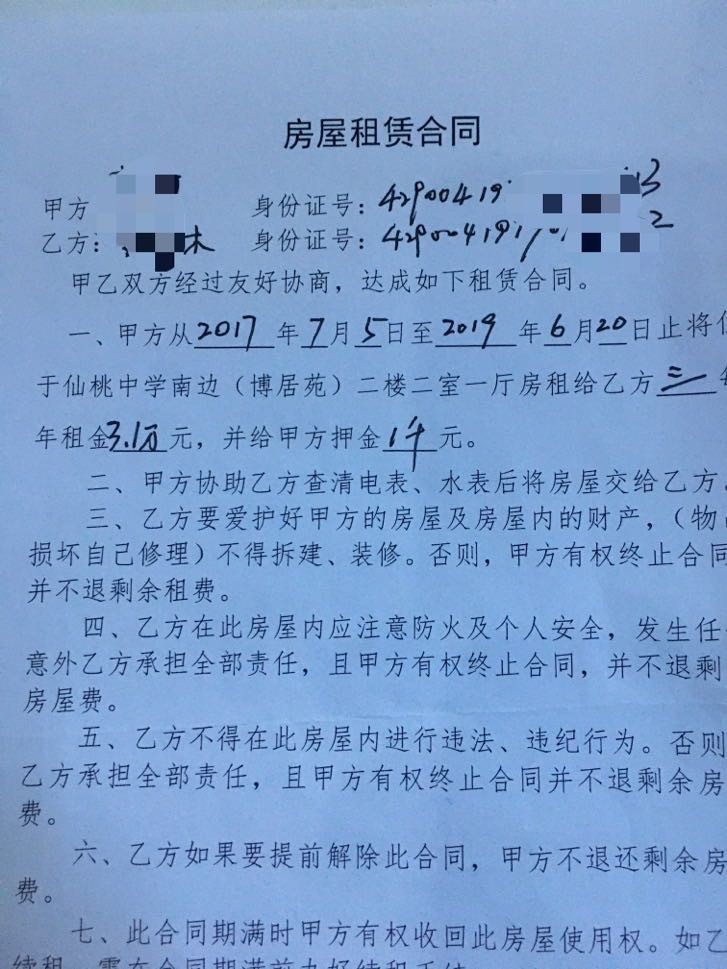 房屋租赁合同
甲方 身份证号：42900419 3
乙方： 木 身份证号：429004191701 2
甲乙双方经过友好协商，达成如下租赁合同。
一、甲方从2017年7月5日至2019年6月20日止将
于仙桃中学南边（博居苑）二楼二室一厅房租给乙方三
年租金3.1万元，并给甲方押金1千元。
二、甲方协助乙方查清电表、水表后将房屋交给乙方。
三、乙方要爱护好甲方的房屋及房屋内的财产，（物
损坏自己修理）不得拆建、装修。否则，甲方有权终止合同
并不退剩余租费。
四、乙方在此房屋内应注意防火及个人安全，发生任
意外乙方承担全部责任，且甲方有权终止合同，并不退剩
房屋费。
五、乙方不得在此房屋内进行违法、违纪行为。否则
乙方承担全部责任，且甲方有权终止合同并不退剩余房
费。
六、乙方如果要提前解除此合同，甲方不退还剩余房
费。
七、此合同期满时甲方有权收回此房屋使用权。如乙
续租，需在合同期满前办好续租手续